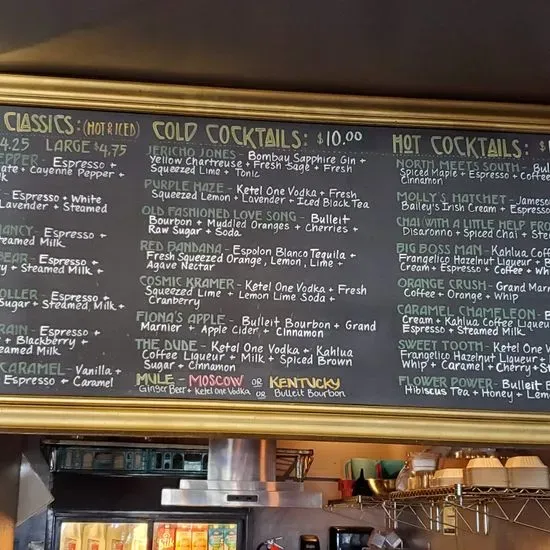 CLASSICS: (HOT & ICED)
4.25 LARGE $4.75
EPPER - Espresso +
ate + Cayenne Pepper +
lk
- Espresso + White
Lavender + Steamed
NANCY - Espresso +
teamed Milk
BEAR - Espresso +
y + Steamed Milk
OLLER - Espresso +
Sugar + Steamed Milk +
RAIN - Espresso +
+ Blackberry +
eamed Milk
CARAMEL - Vanilla +
Espresso + Caramel
COLD COCKTAILS: $10.00
JERICHO JONES - Bombay Sapphire Gin +
Yellow Chartreuse + Fresh Sage + Fresh
Squeezed Lime + Tonic
PURPLE HAZE - Ketel One Vodka + Fresh
Squeezed Lemon + Lavender + Iced Black Tea
OLD FASHIONED LOVE SONG - Bulleit
Bourbon + Myddled Oranges + Cherries +
Raw Sugar + Soda
RED BANDANA - Espolon Blanco Tequila +
Fresh Squeezed Orange, Lemon, Lime +
Agave Nectar
COSMIC KRAMER - Ketel One Vodka + Fresh
Squeezed Lime + Lemon Lime Soda +
Cranberry
FIONA'S APPLE - Bulleit Bourbon + Grand
Marnier + Apple Cider + Cinnamon
THE DUDE - Ketel One Vodka + Kahlua
Coffee Liqueur + Milk + Spiced Brown
Sugar + Cinnamon
MULE - MOSCOW OR KENTUCKY
Ginger Beer + Ketel One Vodka OR Bulleit Bourbon
HOT COCKTAILS: $
NORTH MEETS SOUTH - Bul
Spiced Maple + Espresso + Coffee
Cinnamon
MOLLY'S HATCHET - Jameso
Bailey's Irish Cream + Espress
CHAI (WITH A LITTLE HELP FRO
Disaronno + Spiced Chai + Stea
BIG BOSS MAN - Kahlua Coff
Frangelico Hazelnut Liqueur + B
Cream + Espresso + Coffee + Wh
ORANGE CRUSH - Grand Marn
Coffee + Orange + Whip
CARAMEL CHAMELEON - B
Cream + Kahlua Coffee Liqueu
Espresso + Steamed Milk
SWEET TOOTH - Ketel One V
Frangelico Hazelnut Liqueur +
Whip + Caramel + Cherry + St
FLOWER POWER - Bulleit B
Hibiscus Tea + Honey + Lem